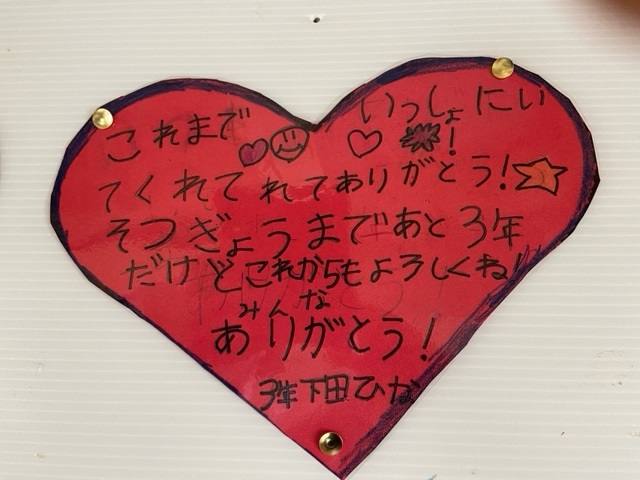 これまで いっしょにい
てくれてれてありがとう!
そつぎょうまであと3年
だけどこれからもよろしくね!
みんな
ありがとう!
3年下田ひな